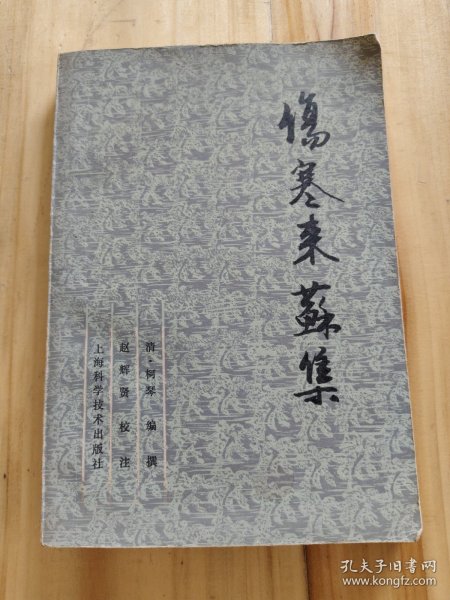 傷寒来蘇集
清·柯琴 编撰
赵辉贤 校注
上海科学技术出版社
孔夫子旧书网
www.kongfz.com